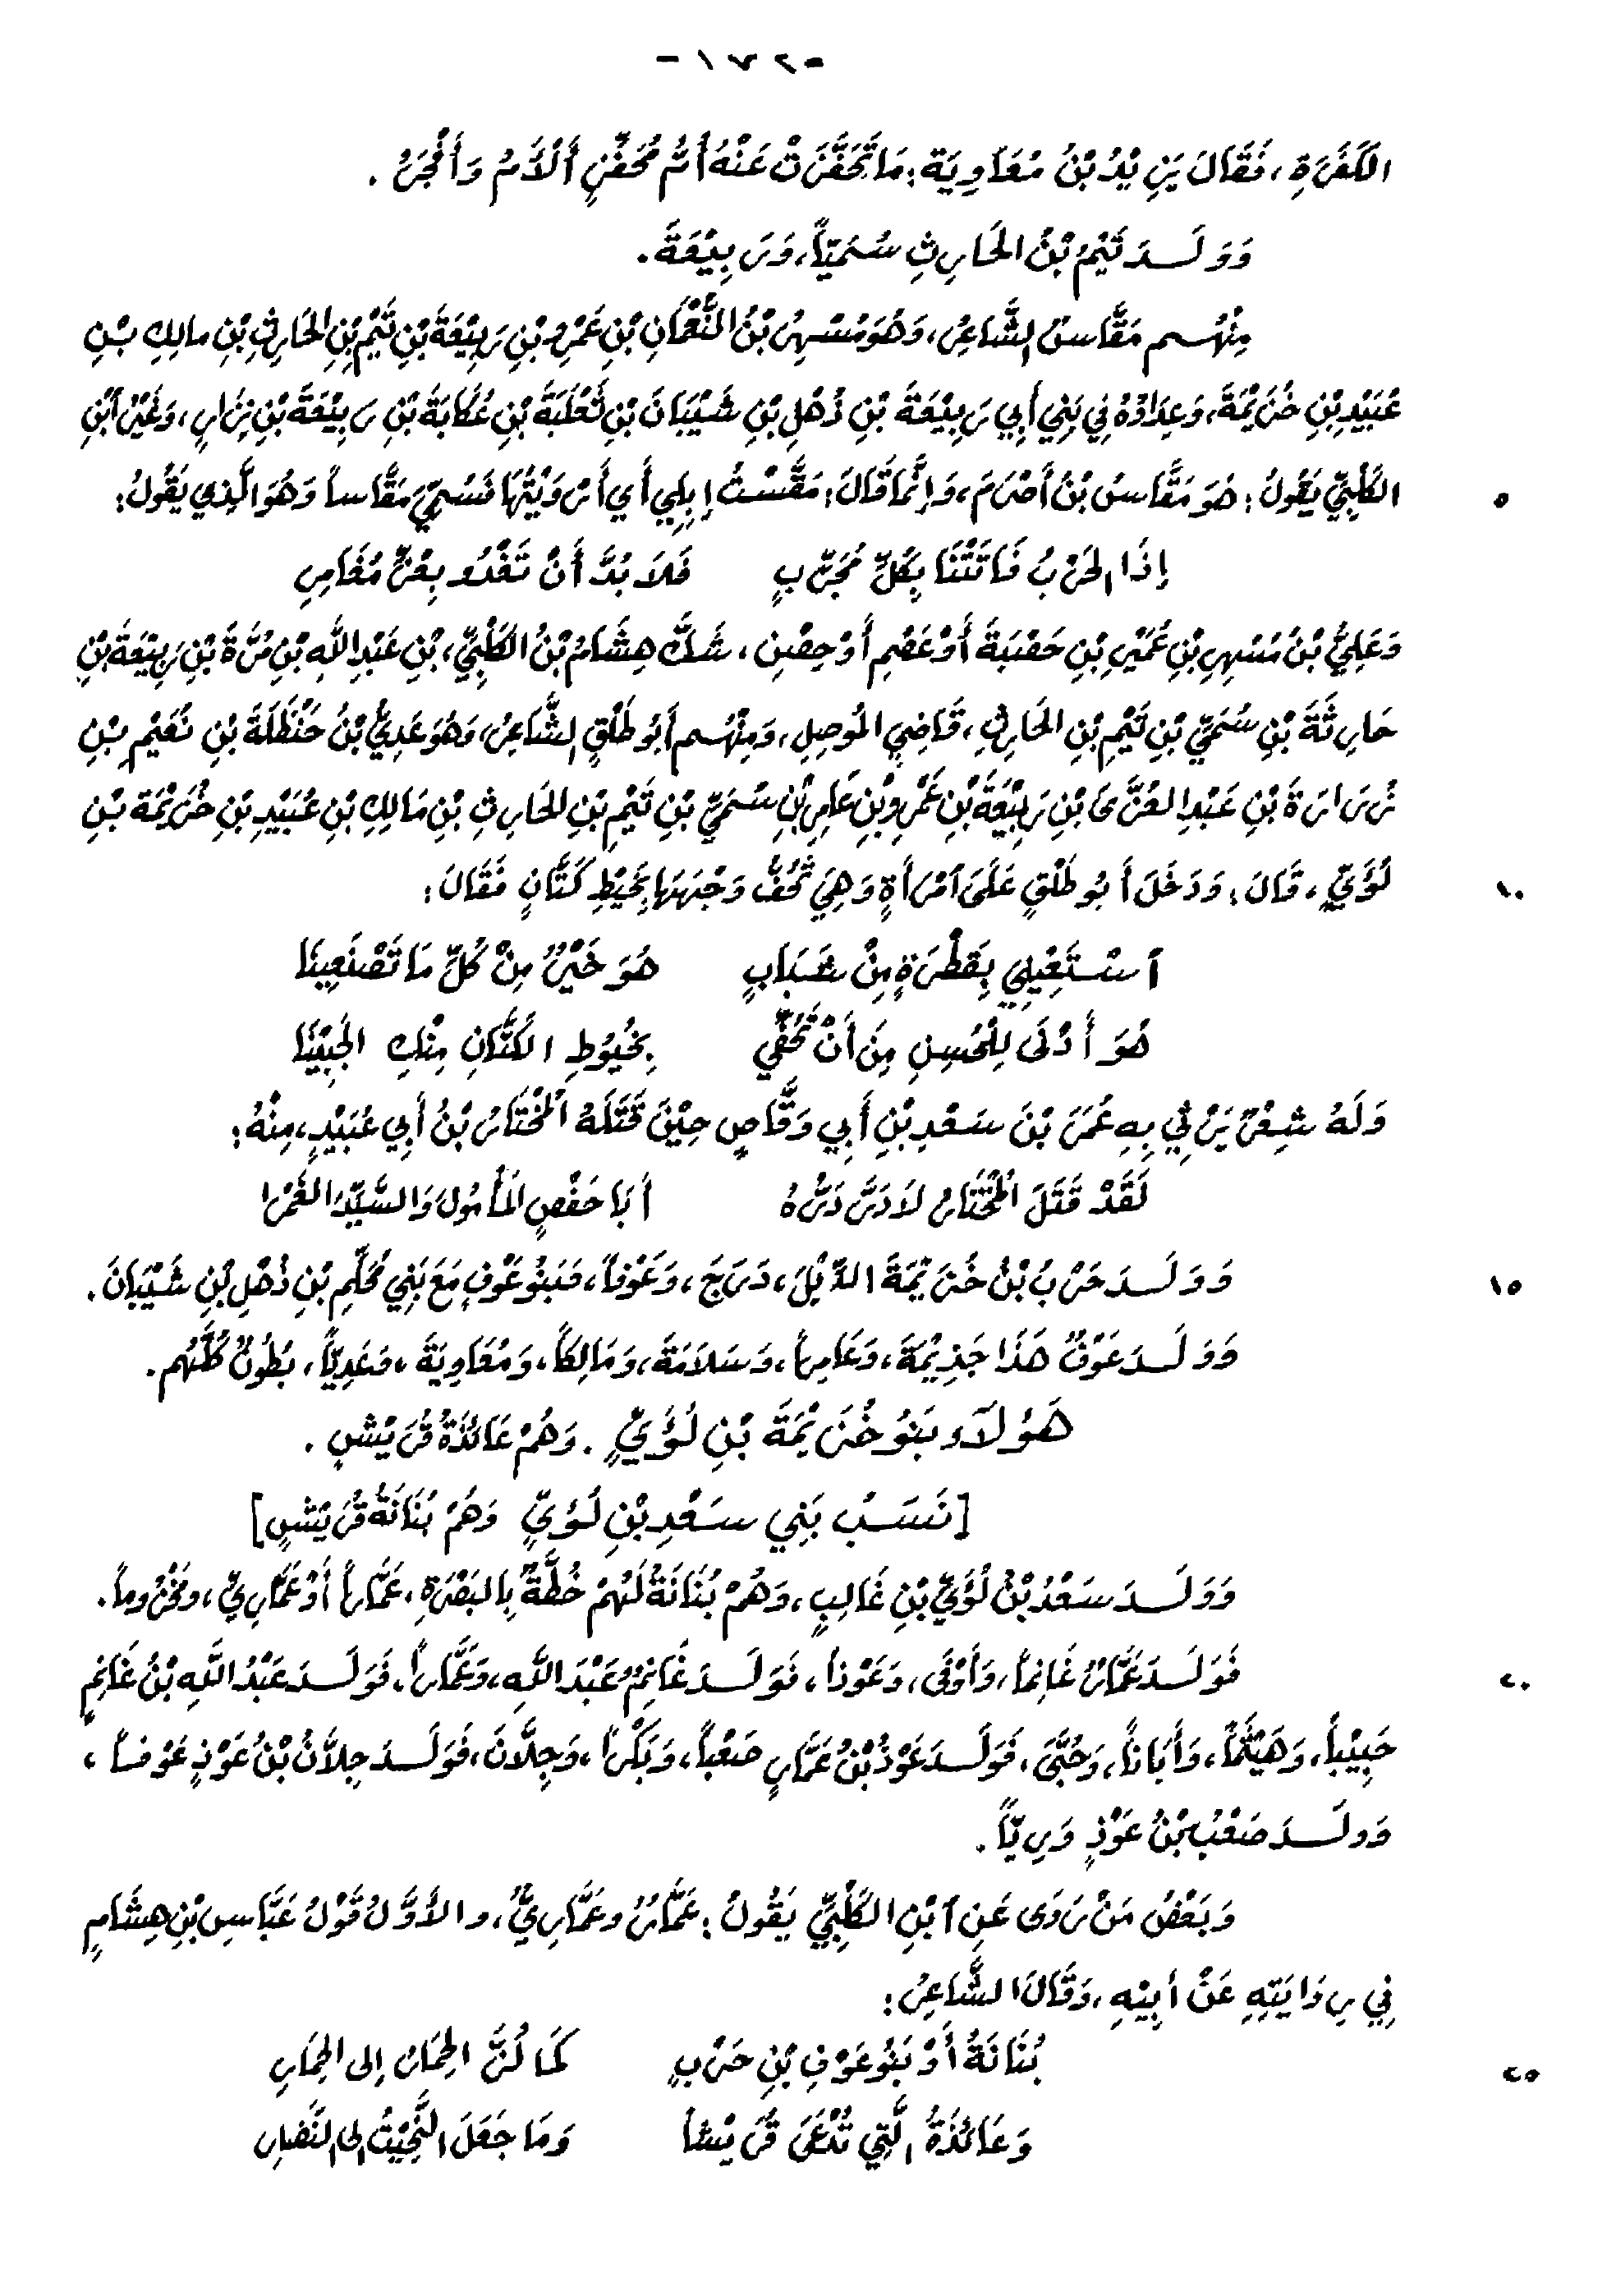 -١٧٢-
الكَفَرَةِ، فَقَالَ يَزِيْدُ بْنُ مُعَاوِيَة: مَا تَحَفَّزَتْ عَنْهُ أُمُّ مُحَفِّزٍ أَلْأَمُ وَأَفْجَرُ .
وَوَلَـدَ تَيْمُ بْنُ الحَارِثِ سُمَيّاً، وَرَبِيْعَةَ.
مِنْهُـم مَقَّاسٌ الشَّاعِرُ، وَهُوَ مُسْهِرُ بْنُ النُّعْمَانِ بْنِ عَمْرِو بْنِ رَبِيْعَةَ بْنِ تَيْمِ بْنِ الحَارِثِ بْنِ مالِكِ بْنِ
عُبَيْدِ بْنِ خُزَيْمَةَ، وَعِدَادُهُ فِي بَنِي أَبِي رَبِيْعَةَ بْنِ ذُهْلِ بْنِ شَيْبَانَ بْنِ ثَعْلَبَةَ بْنِ عُكَابَةَ بْنِ رَبِيْعَةَ بْنِ نِزَارٍ، وَغَيْرُ ٱبْنِ
الكَلْبِيِّ يَقُولُ: هُوَ مَقَّاسُ بْنُ أَصْرَمَ، وَإِنَّمَا قَالَ: مَقَّسْتُ إِبِلِي أَي أَرْوَيْتُهَا فَسُمِّيَ مَقَّاساً وَهُوَ الَّذِي يَقُولُ: ٥
إِذَا الحَرْبُ فَاتَتْنَا بِكُلِّ مُجَرِّبٍ فَلاَ بُدَّ أَنْ تَغْدُو بِعُزٍّ مُغَامِرِ
وَعَلِيُّ بْنُ مُسْهِرِ بْنِ عُمَيْرِ بْنِ حَصْبَةَ أَوْ عَصْمِ أَوْ حِصْنِ، شَكَّ هِشَامُ بْنُ الكَلْبِيِّ، بْنِ عَبْدِ اللَّهِ بْنِ مُرَّةَ بْنِ رَبِيْعَةَ بْنِ
حَارِثَةَ بْنِ سُمَيِّ بْنِ تَيْمِ بْنِ الحَارِثِ، قَاضِي المُوصِلِ، وَمِنْهُـم أَبُو طَلْقٍ الشَّاعِرُ، وَهُوَ عَدِيُّ بْنُ حَنْظَلَةَ بْنِ نُعَيْمِ بْنِ
زُرَارَةَ بْنِ عَبْدِ العُزَّى بْنِ رَبِيْعَةَ بْنِ عَمْرِو بْنِ عَامِرِ بْنِ سُمَيِّ بْنِ تَيْمِ بْنِ الحَارِثِ بْنِ مَالِكِ بْنِ عُبَيْدِ بْنِ خُزَيْمَةَ بْنِ
لُؤَيٍّ، قَالَ: وَدَخَلَ أَبُو طَلْقٍ عَلَى ٱمْرَأَةٍ وَهِيَ تَحُفُّ وَجْهَهَا بِخَيْطِ كَتَّانٍ فَقَالَ: ١٠
ٱسْـتَعِيْنِي بِقَطْرَةٍ مِنْ شَبَابٍ هُوَ خَيْرٌ مِنْ كُلِّ مَا تَصْنَعِينَا
هُوَ أَدْنَى لِلْحُسنِ مِنْ أَنْ تَحُفِّي بِخُيُوطِ الكَتَّانِ مِنْكِ الجَبِيْنَا
وَلَهُ شِعْرٌ يَرْثِي بِهِ عُمَرَ بْنَ سَعْدِ بْنِ أَبِي وَقَّاصٍ حِيْنَ قَتَلَهُ ٱلْمُخْتَارُ بْنُ أَبِي عُبَيْدٍ، مِنْهُ:
لَقَدْ قَتَلَ ٱلْمُخْتَارُ لاَ دَرَّ دَرُّهُ أَبَا حَفْصٍ الْمَأْمُولَ وَالسَّيِّدَ الغَمْرَا
وَوَلَـدَ حَرْبُ بْنُ خُزَيْمَةَ الدَّيْلَ، دَرَجَ، وَعَوْفاً، فَبَنُو عَوْفٍ مَعَ بَنِي مُحَلِّمِ بْنِ ذُهْلِ بْنِ شَيْبَانَ. ١٥
وَوَلَـدَ عَوْفُ هَذَا جَذِيْمَةَ، وَعَامِراً، وَسَلاَمَةَ، وَمَالِكاً، وَمُعَاوِيَةَ، وَعَدِيّاً، بُطُونٌ كُلُّهُم.
هَؤُلآءِ بَنُو خُزَيْمَةَ بْنِ لُؤَيٍّ . وَهُمْ عَائِذَةُ قُرَيْشٍ .
[نَسَـبُ بَنِي سَعْدِ بْنِ لُؤَيٍّ وَهُمْ بُنَانَةُ قُرَيْشٍ]
وَوَلَـدَ سَعْدُ بْنُ لُؤَيِّ بْنِ غَالِبٍ، وَهُمْ بُنَانَةُ لَهُمْ خُطَّةٌ بِالبَصْرَةِ، عَمَّاراً أَوْ عَمَّارِيّ، ومَخْزُوماً.
فَوَلَـدَ عَمَّارٌ غَانِماً، وَأَوْفَى، وَعَوْذاً، فَوَلَـدَ غَانِمٌ عَبْدَ اللَّهِ، وَعَمَّاراً، فَوَلَـدَ عَبْدُ اللَّهِ بْنُ غَانِمٍ ٢٠
حَبِيْباً، وَهَيْثَماً، وَأَبَاناً، وَحُبَّى، فَوَلَـدَ عَوْذُ بْنُ عَمَّارٍ صَعْباً، وَبَكْراً، وَجِلاَّنَ، فَوَلَـدَ جِلاَّنُ بْنُ عَوْذٍ عَوْضاً ،
وَولَـدَ صَعْبُ بْنُ عَوْذٍ وَرِيّاً .
وَبَعْضُ مَنْ رَوَى عَنِ ٱبْنِ الكَلْبِيِّ يَقُولُ: عَمَّارٌ وعَمَّارِيُّ، والأَوَّلُ قَوْلُ عَبَّاسِ بْنِ هِشَامٍ
فِي رِوَايَتِهِ عَنْ أَبِيْهِ، وَقَالَ الشَّاعِرُ:
بُنَانَةُ أَوْ بَنُو عَوْفِ بْنِ حَرْبٍ كَمَا لُزَّ الحِمَارُ إِلى الحِمَارِ ٢٥
وَعَائِذَةُ الَّتِي تُدْعَى قُرَيْشاً وَمَا جَعَلَ النَّحِيْتُ إلى النُّضارِ